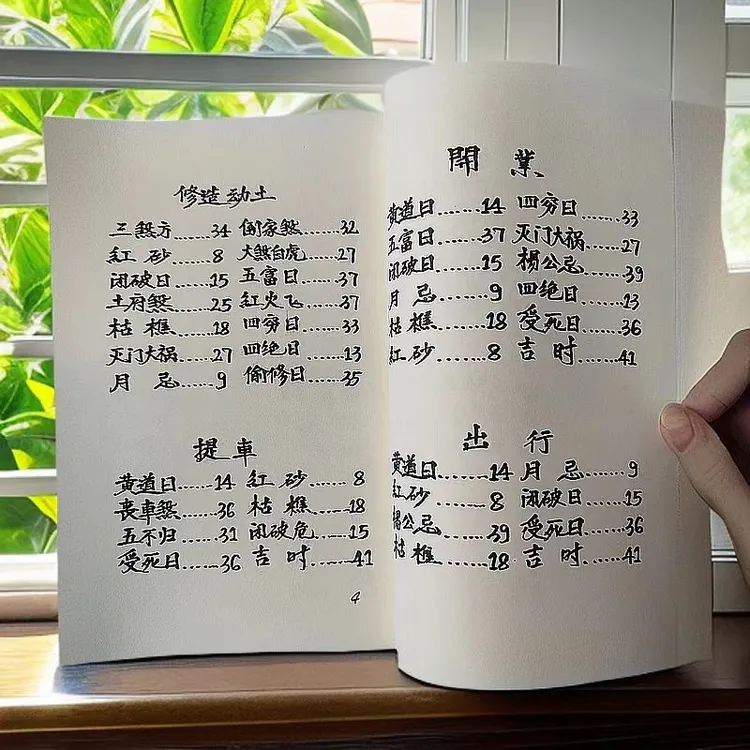 修造动土
三煞方......34 倒家煞......32
紅砂......8 大煞白虎......27
闭破日......15 五富日......37
土府煞......25 紅火飞......37
枯樵......18 四穷日......33
灭门大祸......27 四绝日......13
月忌......9 偷修日......35
提車
黄道日......14 紅砂......8
丧車煞......36 枯樵......18
五不归......31 闭破危......15
受死日......36 吉时......41
4
開業
黄道日......14 四穷日......33
五富日......37 灭门大祸......27
闭破日......15 楊公忌......39
月忌......9 四绝日......13
枯樵......18 受死日......36
紅砂......8 吉时......41
出行
黄道日......14 月忌......9
紅砂......8 闭破日......15
楊公忌......39 受死日......36
枯樵......18 吉时......41